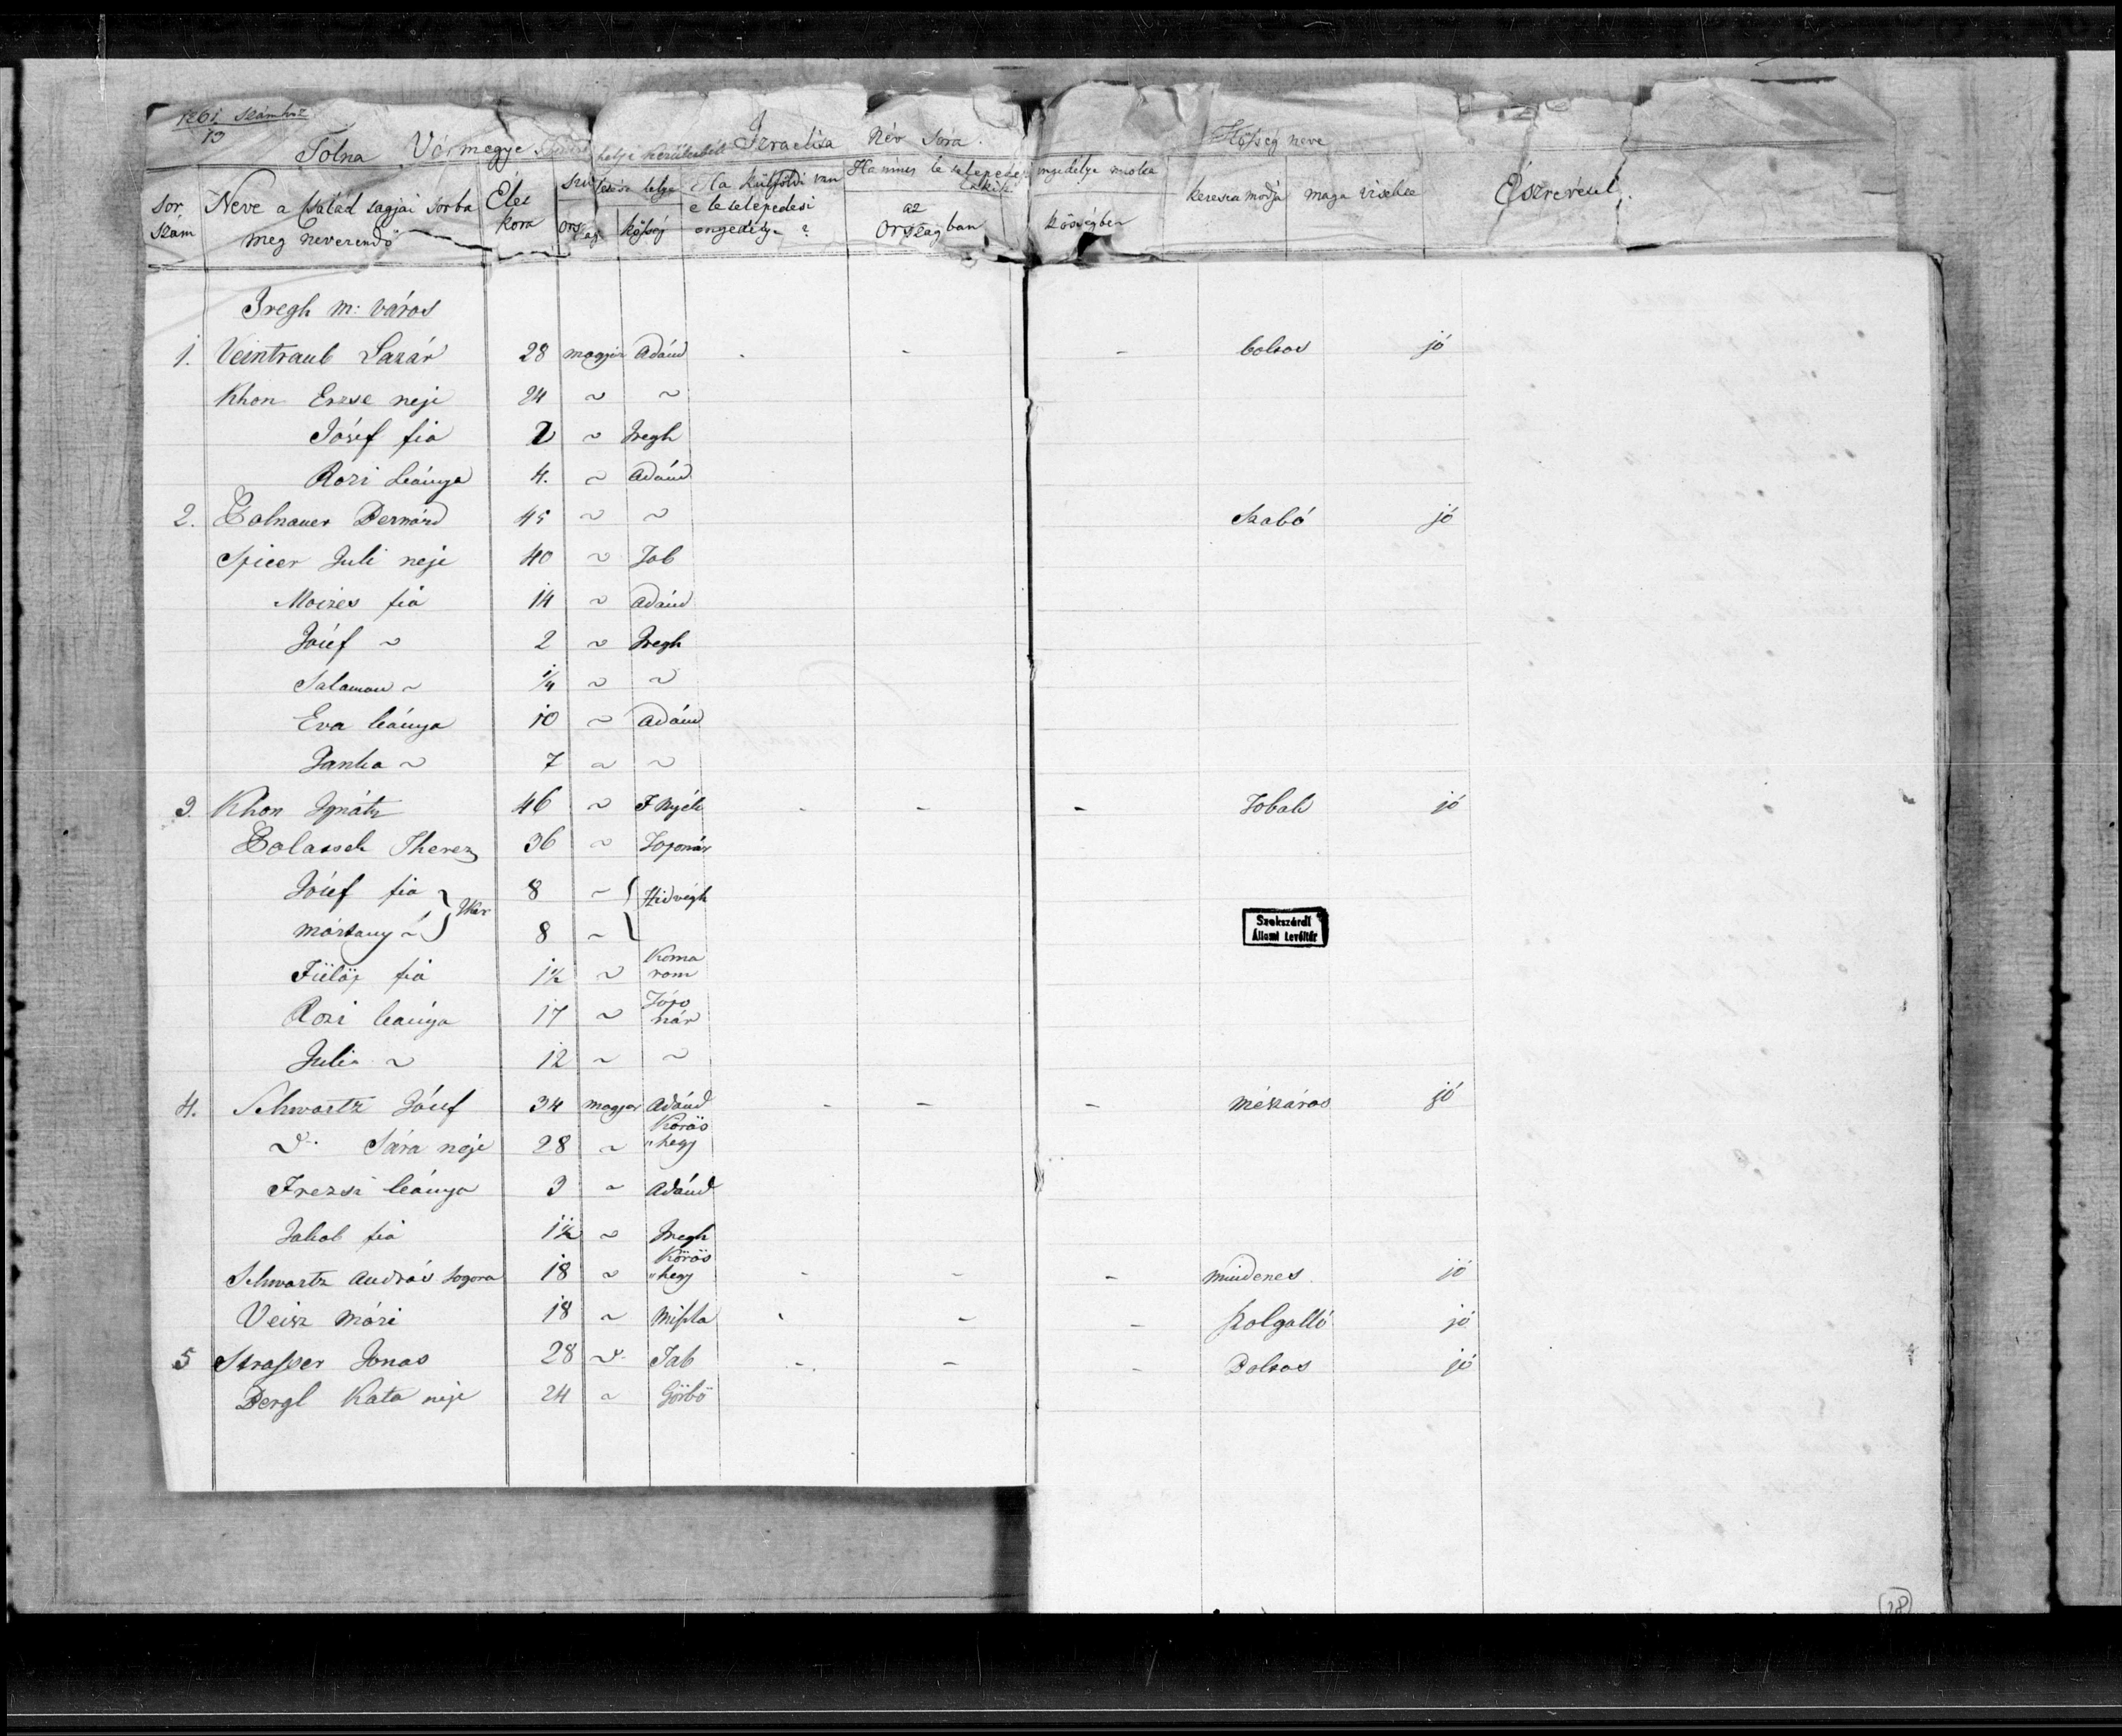 1261. számhoz
13
Tolna Vármegye helyi kerületbeli Izraelita Név Sora.
Község neve
sor szám
Neve a család tagjai sorba meg neverendő
Élet kora
szü letése helye
Ors zág
község
Ha külföldi van e le telepedesi engedélye ?
Ha nincs le telepedesi engedélye miolta lakik
az Országban
községben
keresca modja
maga viselete
Észrevétel.
Iregh m: város
1. Veintraub Lazár 28 magyar Adánd - - - boltos jó
Khon Erzse neje 24 ~ ~
Jósef fia 2 ~ Iregh
Rozi Leánya 4. ~ Adánd
2. Tolnauer Bernárd 45 ~ ~ Szabó jó
Spicer Juli neje 40 ~ Tab
Moizes fia 14 ~ Adánd
Jósef ~ 2 ~ Iregh
Salamon ~ 1/4 ~ ~
Eva leánya 10 ~ Adánd
Janka ~ 7 ~ ~
3. Khon Ignátz 46 ~ F Nyék - - - Tobak jó
Therez 36 ~ Toponár
Jósef fia ~ 8 ~ Hidvégh
Mártony ~ } Iker 8 ~
Fülöp fia 1 1/2 ~ Koma rom
Rozi leánya 17 ~ Tópo nár
Juli ~ 12 ~ ~
4. Schwartz Jósef 34 magyar Adánd - - - mészáros jó
~ Sára neje 28 ~ Körös "hegy
Frezsi leánya 3 ~ Adánd
Jakob fia 1 1/2 ~ Iregh
Schwartz András sogora 18 ~ Körös "hegy - - - mindenes jó
Veisz Mári 18 ~ Miszla - - - szolgálló jó
5 Strasser Jonas 28 ~ Tab - - - Boltos jó
Bergl Kata neje 24 ~ Görbő
Szekszárdi
Állami Levéltár
28